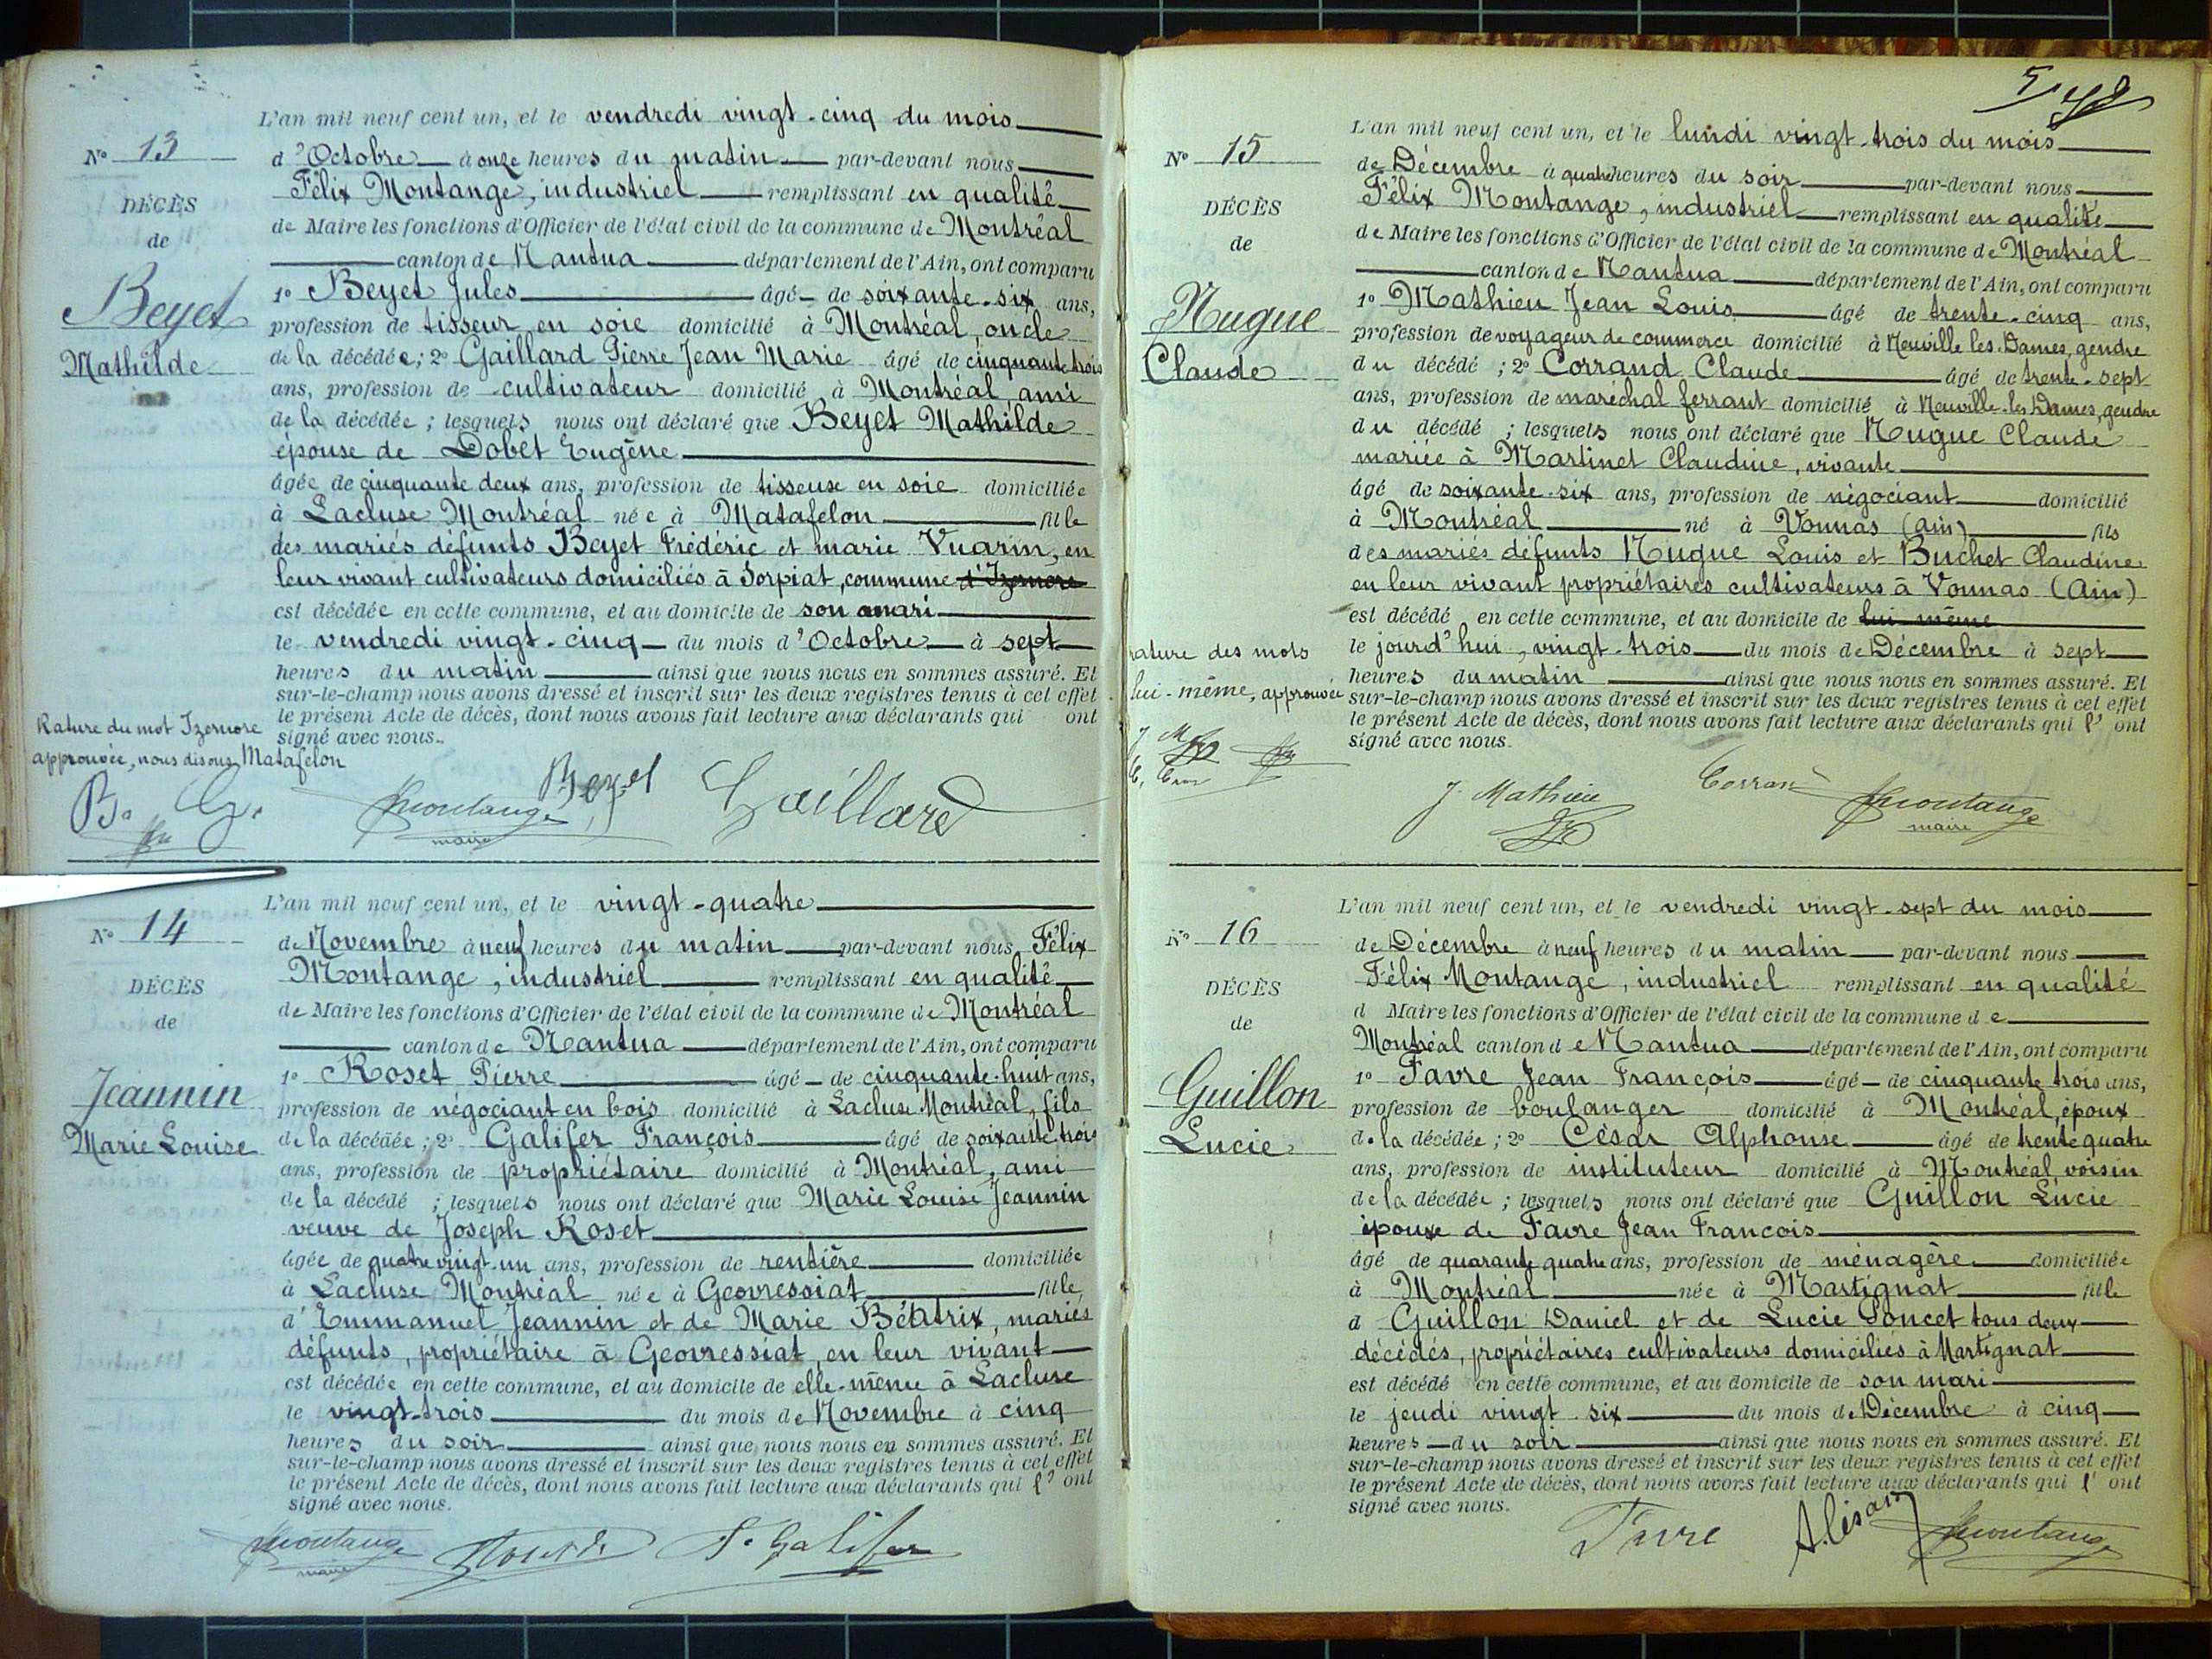 L'an mil neuf cent un, et le vendredi vingt-cinq du mois
N° 13
d'Octobre à onze heures du matin par-devant nous
Félix Montange, industriel remplissant en qualité
DÉCÈS
de Maire les fonctions d'Officier de l'état civil de la commune de Montréal
de
canton de Nantua département de l'Ain, ont comparu
Beyet
1° Beyet Jules âgé de soixante-six ans,
profession de tisseur en soie domicilié à Montréal, oncle
Mathilde
de la décédée; 2° Gaillard Pierre Jean Marie âgé de cinquante trois
ans, profession de cultivateur domicilié à Montréal, ami
de la décédée; lesquels nous ont déclaré que Beyet Mathilde
épouse de Dobet Eugène
âgée de cinquante deux ans, profession de tisseuse en soie domiciliée
à Lacluse Montréal née à Matafelon fille
des mariés défunts Beyet Frédéric et marie Vuarin, en
leur vivant cultivateurs domiciliés à Sorpiat, commune d'Izernore
est décédée en cette commune, et au domicile de son mari
le vendredi vingt-cinq du mois d'Octobre à sept
heures du matin ainsi que nous nous en sommes assuré. Et
sur-le-champ nous avons dressé et inscrit sur les deux registres tenus à cet effet
le présent Acte de décès, dont nous avons fait lecture aux déclarants qui ont
signé avec nous.
Rature du mot Izernore
approuvée, nous disons Matafelon
B. G.
Montange Beyet Gaillard
maire
L'an mil neuf cent un, et le vingt-quatre
N° 14
de Novembre à neuf heures du matin par-devant nous Félix
DÉCÈS
Montange, industriel remplissant en qualité
de Maire les fonctions d'Officier de l'état civil de la commune de Montréal
de
canton de Nantua département de l'Ain, ont comparu
Jeannin
1° Roset Pierre âgé de cinquante-huit ans,
profession de négociant en bois domicilié à Lacluse Montréal, fils
Marie Louise
de la décédée; 2° Galifer François âgé de soixante trois
ans, profession de propriétaire domicilié à Montréal, ami
de la décédé ; lesquels nous ont déclaré que Marie Louise Jeannin
veuve de Joseph Roset
âgée de quatre vingt-un ans, profession de rentière domiciliée
à Lacluse Montréal née à Geovressiat fille
d'Emmanuel Jeannin et de Marie Béatrix, mariés
défunts, propriétaire à Geovressiat, en leur vivant
est décédée en cette commune, et au domicile de elle-même à Lacluse
le vingt-trois du mois de Novembre à cinq
heures du soir ainsi que nous nous en sommes assuré. Et
sur-le-champ nous avons dressé et inscrit sur les deux registres tenus à cet effet
le présent Acte de décès, dont nous avons fait lecture aux déclarants qui l'ont
signé avec nous.
Montange F. Galifer
maire
L'an mil neuf cent un, et le lundi vingt-trois du mois
N° 15
de Décembre à quatre heures du soir par-devant nous
DÉCÈS
Félix Montange, industriel remplissant en qualité
de
de Maire les fonctions d'Officier de l'état civil de la commune de Montréal
canton de Nantua département de l'Ain, ont comparu
Nugue
1° Mathieu Jean Louis âgé de trente-cinq ans,
profession de voyageur de commerce domicilié à Neuville les Dames, gendre
Claude
du décédé ; 2° Corrand Claude âgé de trente-sept
ans, profession de maréchal ferrant domicilié à Neuville-les Dames, gendre
du décédé ; lesquels nous ont déclaré que Nugue Claude
mariée à Martinet Claudine, vivante
âgé de soixante-six ans, profession de négociant domicilié
à Montréal né à Vonnas (Ain) fils
des mariés défunts Nugue Louis et Buchet Claudine
en leur vivant propriétaires cultivateurs à Vonnas (Ain)
est décédé en cette commune, et au domicile de lui-même
le jourd'hui, vingt-trois du mois de Décembre à sept
heures du matin ainsi que nous nous en sommes assuré. Et
sur-le-champ nous avons dressé et inscrit sur les deux registres tenus à cet effet
le présent Acte de décès, dont nous avons fait lecture aux déclarants qui l'ont
signé avec nous.
rature des mots
lui-même, approuvée
J. Mathieu Corrand Montange
maire
L'an mil neuf cent un, et le vendredi vingt-sept du mois
N° 16
de Décembre à neuf heures du matin par-devant nous
DÉCÈS
Félix Montange, industriel remplissant en qualité
de
d Maire les fonctions d'Officier de l'état civil de la commune de
Montréal canton de Nantua département de l'Ain, ont comparu
Guillon
1° Favre Jean François âgé de cinquante trois ans,
profession de boulanger domicilié à Montréal, époux
Lucie
de la décédée; 2° César Alphonse âgé de trente quatre
ans, profession de instituteur domicilié à Montréal, voisin
de la décédée; lesquels nous ont déclaré que Guillon Lucie
épouse de Favre Jean François
âgé de quarante quatre ans, profession de ménagère domiciliée
à Montréal née à Martignat fille
d Guillon Daniel et de Lucie Poncet tous deux
décédés, propriétaires cultivateurs domiciliés à Martignat
est décédé en cette commune, et au domicile de son mari
le jeudi vingt-six du mois de Décembre à cinq
heures du soir ainsi que nous nous en sommes assuré. Et
sur-le-champ nous avons dressé et inscrit sur les deux registres tenus à cet effet
le présent Acte de décès, dont nous avons fait lecture aux déclarants qui l'ont
signé avec nous.
Favre A. César Montange